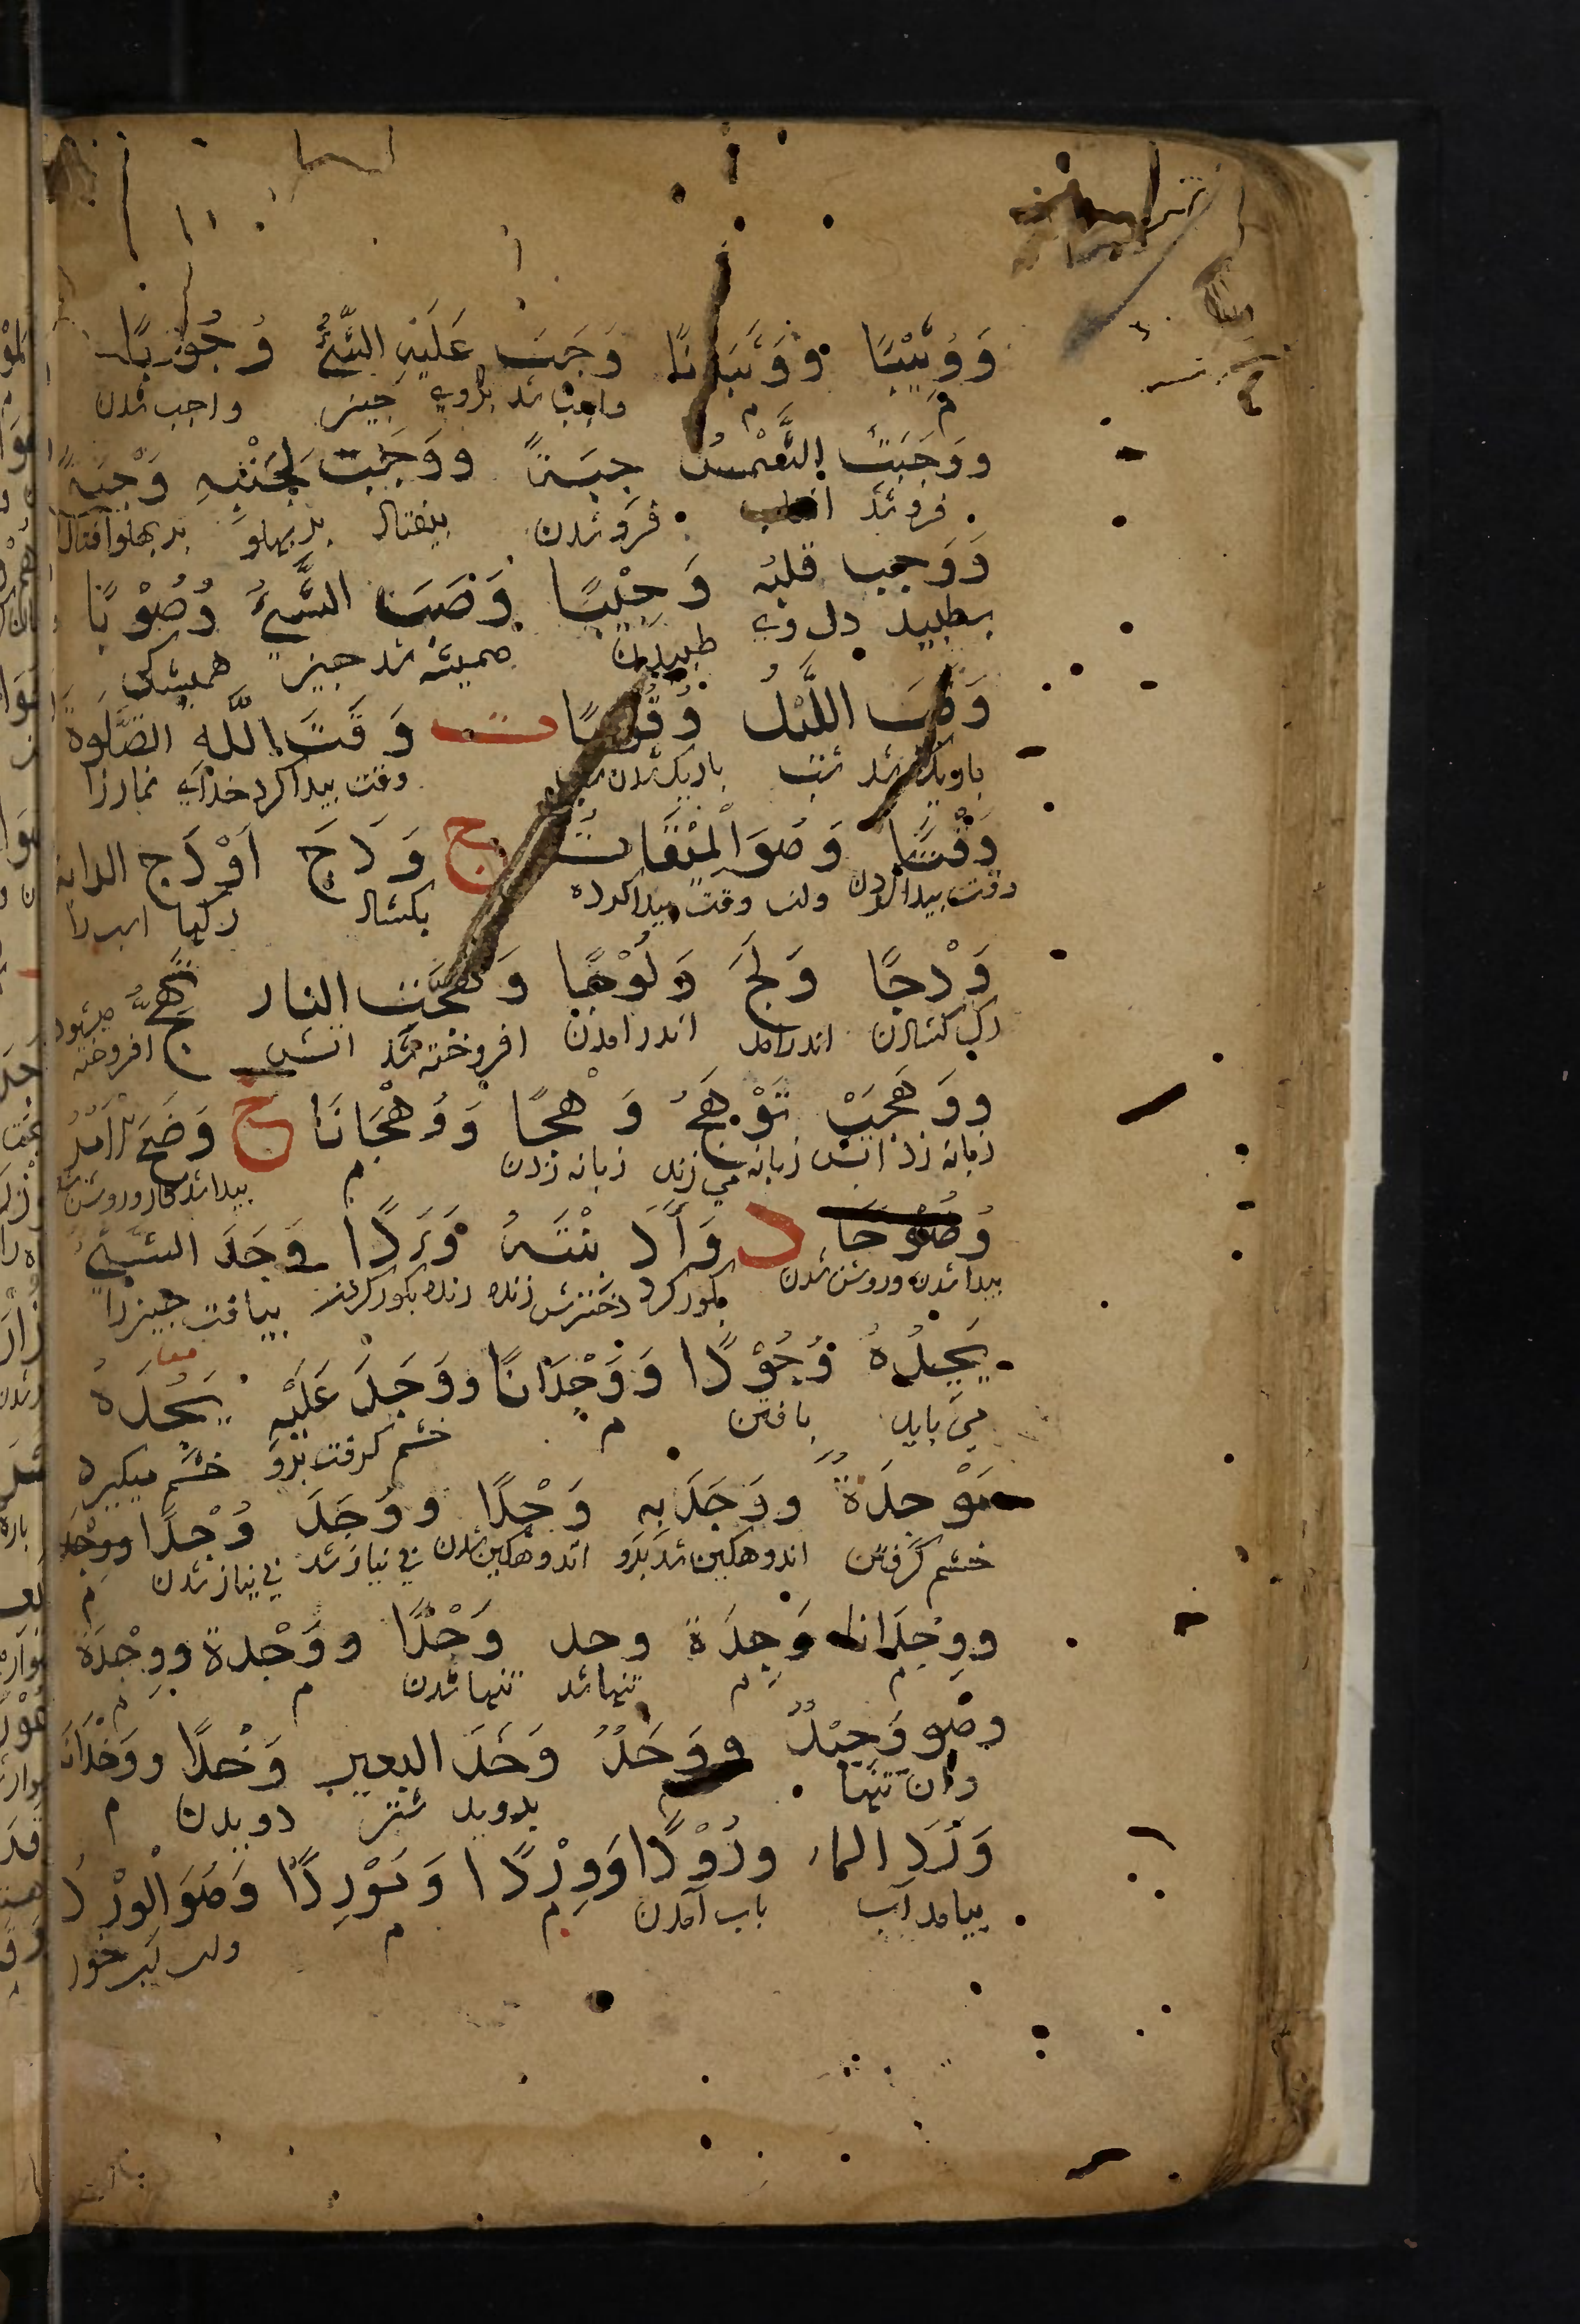 وَوَثِيْبًا وَوَثَبَانًا وَجَبَ عَلَيْهِ الشَّيْءُ وُجُوْبًا
م م واجب شد بروى چيز واجب شدن
وَوَجَبَتِ الشَّمْسُ جِبَةً وَوَجَبَتْ لِجَنْبِهِ وَجْبَةً
فروشد افتاب فروشدن بيفتاد بر پهلو بر پهلو افتادن
وَوَجَبَ قلبُه وَجِيْبًا وَصَبَ الشَّيْءُ وُصُوْبًا
بطپيد دل وى طپيدن هميشه شد چيز هميشكى
وَقَبَ اللَّيْلُ وُقُوْبًا ت وَقَتَ اللّٰهِ الصَّلٰوةَ
باريك شد شب تاريك شدن شب وقت پيدا كرد خداى نماز را
وَقْتًا وَهُوَ الْمِيْقَاتُ ج وَدَجَ اَوْدَاج الدابه
وقت پيدا كردن ولب وقت پيدا كرده بكشاد ركها اسب را
وَدْجًا وَلَجَ وَلُوْجًا وَهَجَّتِ النار تَهِجُّ
رك كشادن اندرامد اندرامدن افروخته شد اتش افروخته ميشود
وَوَهَجَتْ تَوْهَجُ وَهْجًا وَوَهْجَانًا ح وَضَحَ الْاَمْرُ
زبانه زد اتش زبانه مى زند زبانه زدن م پيدا شد كار وروشن شد
وُضُوْحًا د وَأَدَ بِنْتَهُ وَأْدًا وَجَدَ الشَّيْءَ
پيدا شدن وروشن شدن بكور كرد دخترش زنده زنده بكور كردن بيافت چيز را
يَجِدُهُ وُجُوْدًا وَوِجْدَانًا وَوَجَدَ عَلَيْهِ يَجُدُهُ معا
مى يابد يافتن م خشم كرفت برو خشم ميكيرد
مَوْجِدَةً وَوَجَدَ بِهِ وَجْدًا وَوَجَدَ وُجْدًا وَوَجْد
خشم كرفتن اندوهكين شد برو اندوهكين شدن بى نياز شد بى نياز شدن م
وَوِجْدَانا وَجِدَةً وحد وَحْدًا وَوَحْدة وَوِحْدَة
م م تنها شد تنها شدن م م
وهو وَحِيْدٌ وَوَحَدٌ وَخَدَ البعير وَخْدًا وَوَخْدَانا
وان تنها م بدويد شتر دويدن م
وَرَدَ الماء وُرُوْدًا وَوِرْدًا وَتَوْرِدًا وَهُوَ الْوِرْد
بيامد آب باب آمدن م م ولب اب خور